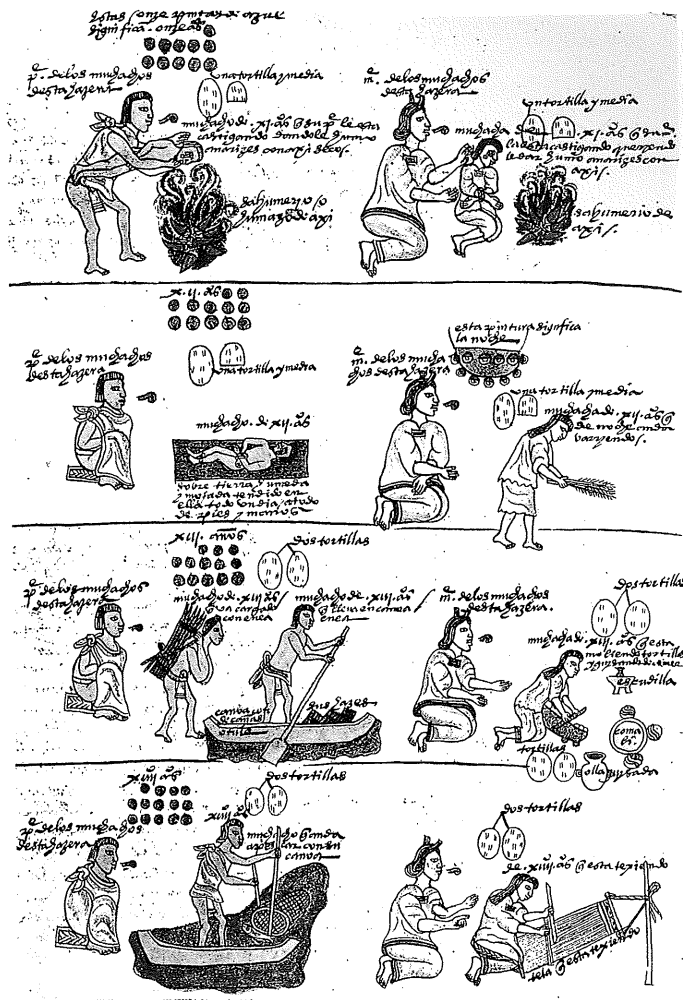 estas honze pintas de azul
significa. onze aºs
pº. de los muchachos
desta hazera
una tortilla y media
muchacho de. xi. aºs q̃ su pº le esta
castigando dandole humo
a narizes con axi secos.
sahumerio o
humazo de axi
mº. de los muchachos
desta hazera
un tortilla y media
muchacha de xi. aºs q̃ su mº.
la esta castigando queriendo
le dar humo a narizes con
axi.
sahumerio de
axi.
xii. aºs
pº de los muchachos
desta hazera
una tortilla y media
muchacho de xii. aºs
sobre tierra umeda
y mojada tendido en
el lodo un dia, atado
de pies y manos
esta pintura significa
la noche
mº. de los mucha
chos desta hazera
una tortilla y media
muchacha de. xii. aºs q̃
de noche anda
varriendo.
xiii. años
dos tortillas
pº de los muchachos
desta hazera
muchacho de xiii aºs
q̃ va cargado
con enea
muchacho de. xiii. aºs
q̃ lleva en canoa
enea
canoa con
dos hazes
mº. de los muchachos
desta hazera.
dos tortillas
muchacha de. xiii. aºs q̃ esta
moliendo tortillas
escudilla
coma
tortillas
olla
xiiii aºs
dos tortillas
pº de los muchachos
desta hazera
xiiii aºs
muchacho q̃ anda
a pescar con su
canoa
dos tortillas
de. xiiii. aºs q̃ esta texiendo
tela q̃ esta texiendo